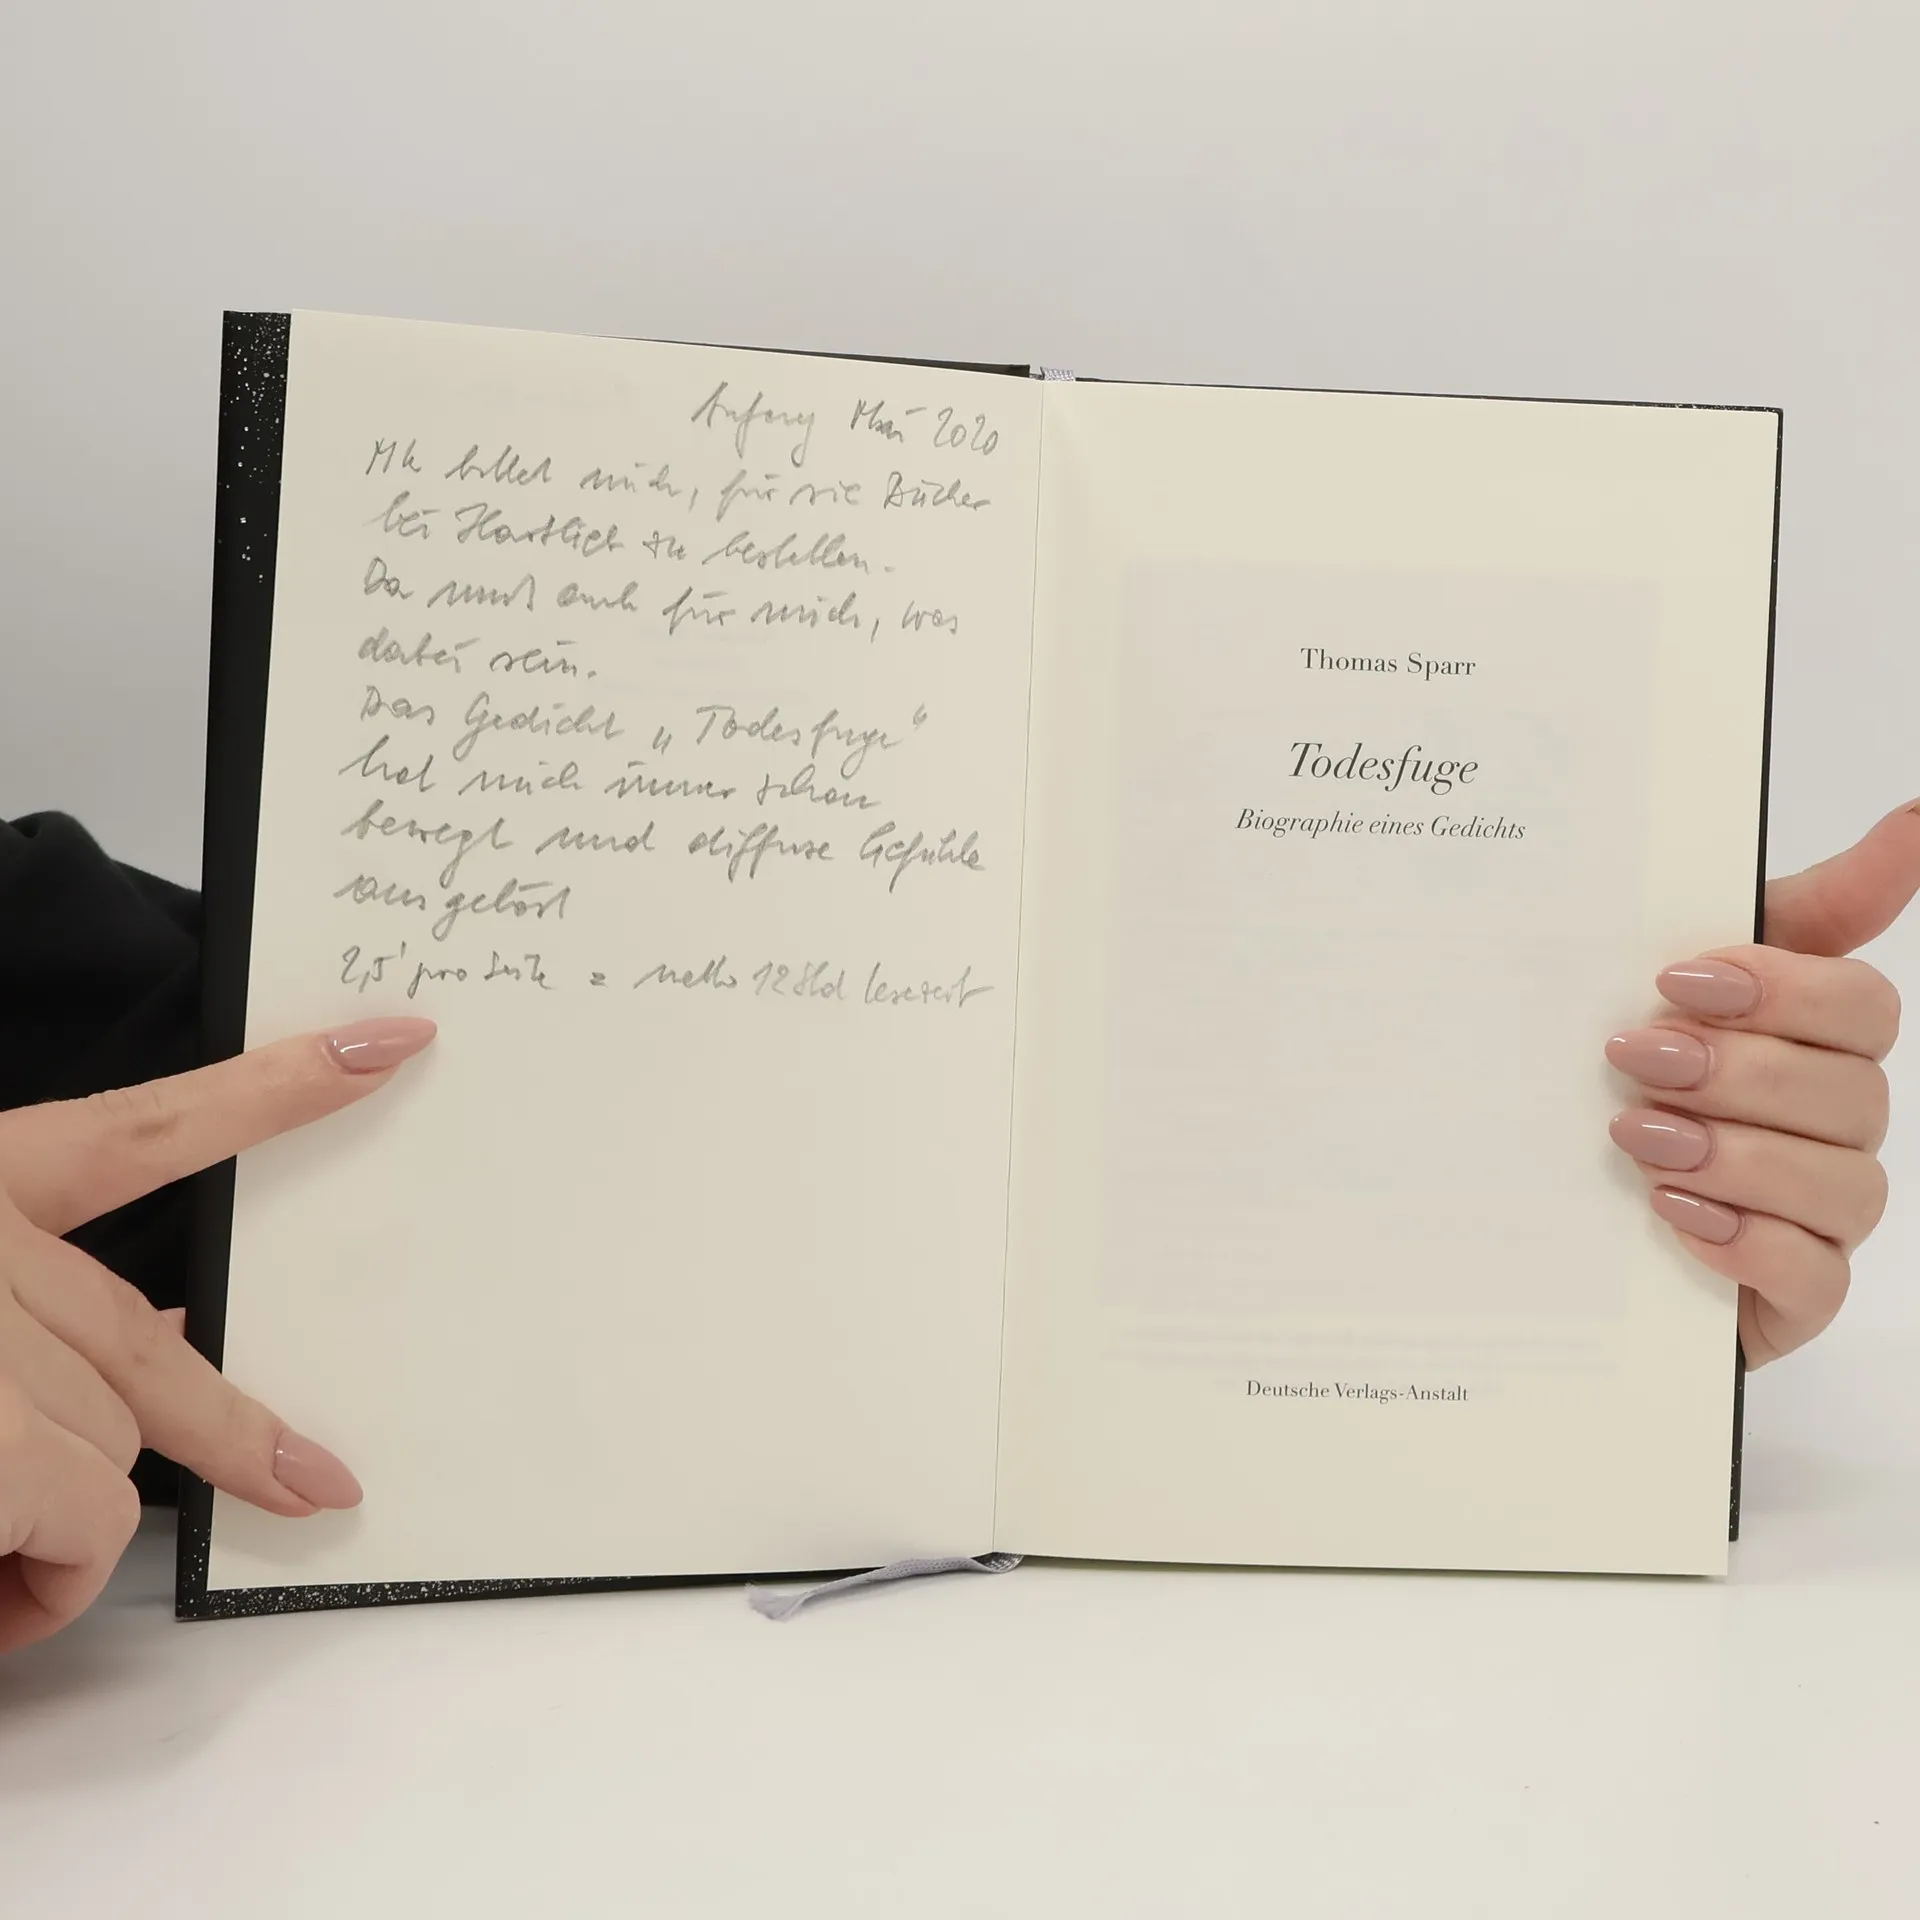 Anfang Mai 2020
Mk bittet mich, für sie Bücher
bei Hartlieb zu bestellen.
Da muß auch für mich, was
dabei sein.
Das Gedicht „Todesfuge“
hat mich immer schon
bewegt und diffuse Gefühle
ausgelöst
2,5' pro Seite = netto 12 Std Lesezeit
Thomas Sparr
Todesfuge
Biographie eines Gedichts
Deutsche Verlags-Anstalt